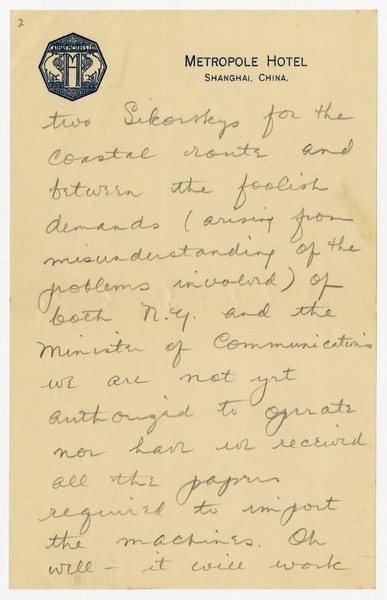 2
CATHAY HOTELS, LTD.
MH
METROPOLE HOTEL
SHANGHAI, CHINA.
two Sikorskys for the
coastal route and
between the foolish
demands (arising from
misunderstanding of the
problems involved) of
both N.Y. and the
Minister of Communications
we are not yet
authorized to operate
nor have we received
all the papers
required to import
the machines. Oh
well - it will work